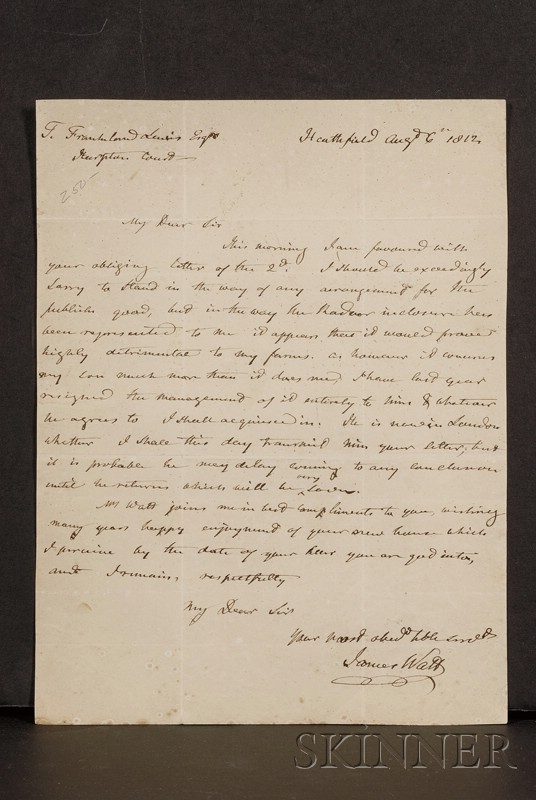 T. Frankland Lewis Esqr
Harpton Court
Heathfield Augt 6th 1812
250-
My Dear Sir
This morning I am favoured with
your obliging letter of the 2d. I should be exceedingly
sorry to stand in the way of any arrangemt for the
publick good, but in the way the Radnor inclosure has
been represented to me it appears that it would prove
highly detrimental to my farms. as however it concerns
my son much more than it does me, I have last year
resigned the management of it entirely to him & whatever
he agrees to I shall acquiesce in. He is now in London
whither I shall this day transmit him your letter, but
it is probable he may delay coming to any conclusion
until he returns which will be very soon.
Mrs Watt joins me in best compliments to you wishing
many years happy enjoyment of your new house which
I perceive by the date of your letter you are got into,
and I remain, respectfully
My Dear Sir
Your most obedt hble servt
James Watt
SKINNER